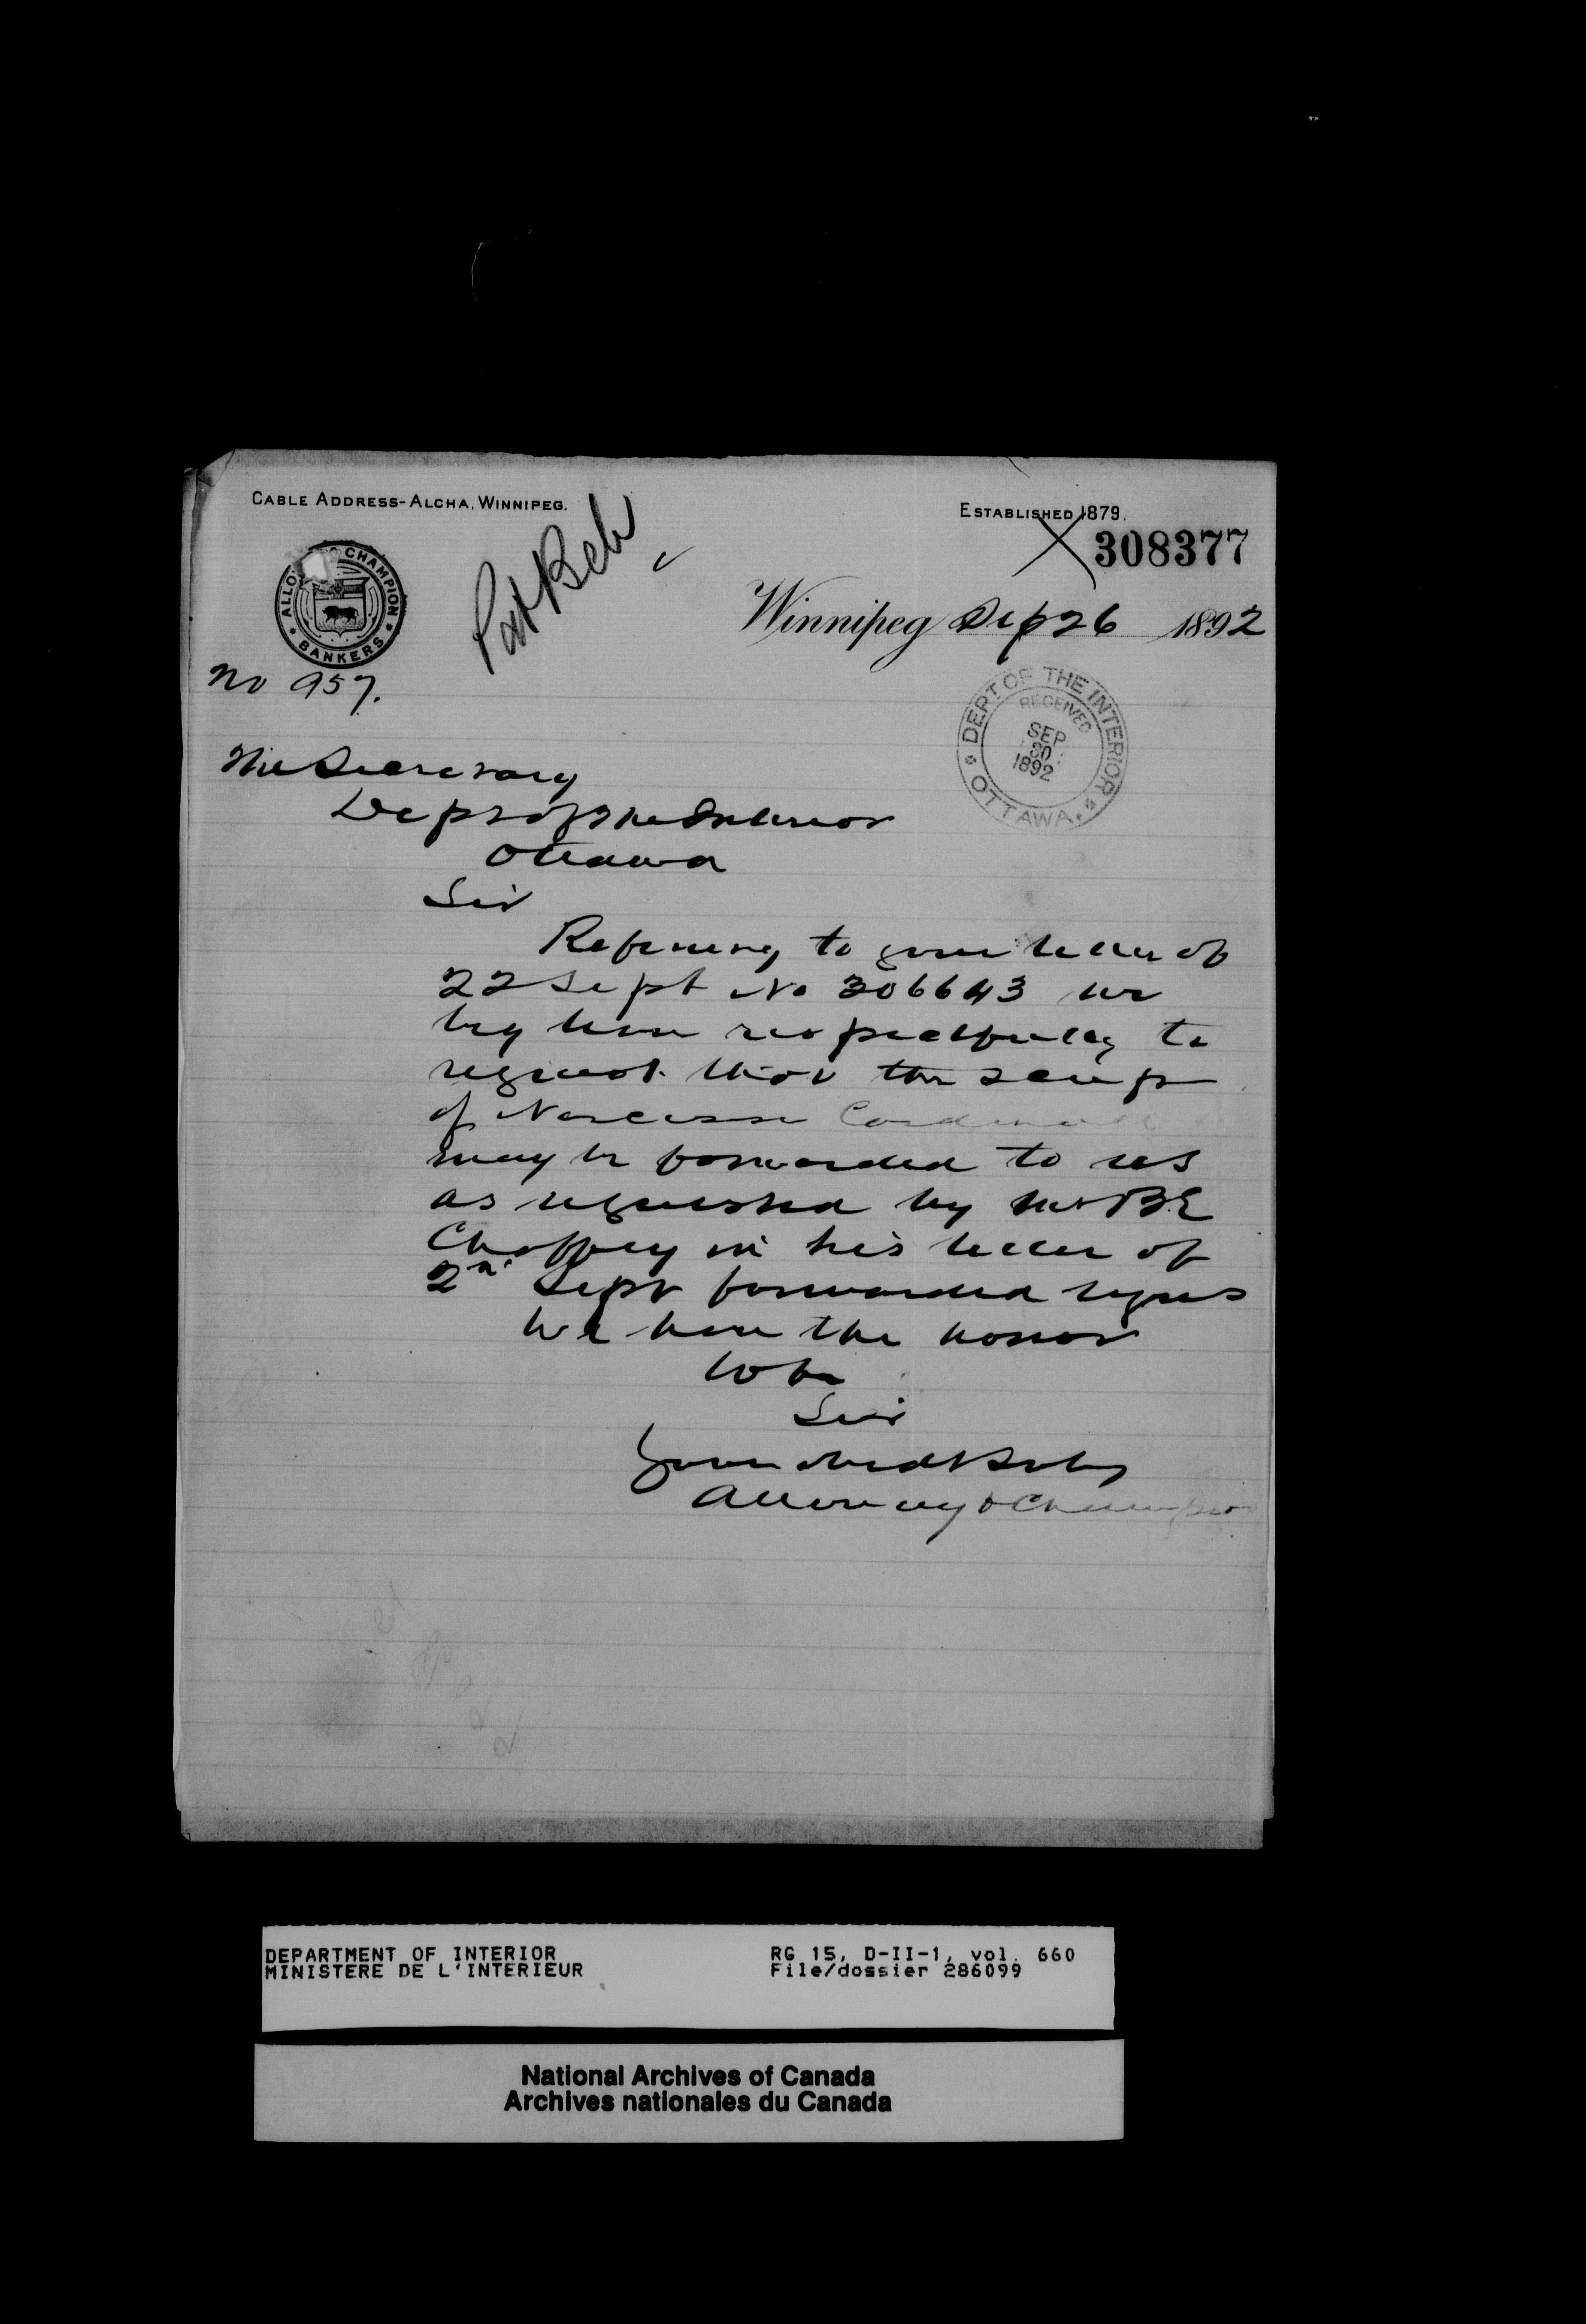 CABLE ADDRESS-ALCHA, WINNIPEG.
ESTABLISHED 1879.
308377
ALLO CHAMPION BANKERS
Pat Beh
Winnipeg Sep 26 1892
No 957.
DEPT OF THE INTERIOR
RECEIVED
SEP
30
1892
OTTAWA.
The Secretary
Dept of the Interior
Ottawa
Sir
Referring to your letter of
22 Sept No 306643 we
beg leave respectfully to
request that the scrip
of Narcisse Cardinal
may be forwarded to us
as requested by Mr B.E
Chaffey in his letter of
2n. Sept forwarded by us
We have the honor
to be
Sir
Your obedt Servts
Alloway & Champion
DEPARTMENT OF INTERIOR
MINISTERE DE L'INTERIEUR
RG 15, D-II-1, vol. 660
File/dossier 286099
National Archives of Canada
Archives nationales du Canada